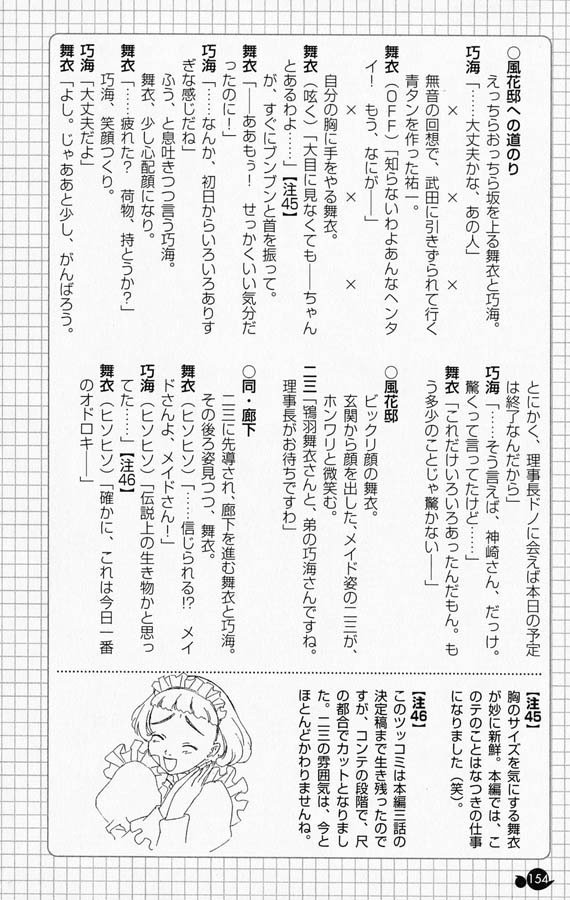 ○風花邸への道のり
えっちらおっちら坂を上る舞衣と巧海。
巧海「……大丈夫かな、あの人」
× × ×
無音の回想で、武田に引きずられて行く
青タンを作った祐一。
舞衣（ＯＦＦ）「知らないわよあんなヘンタ
イ！　もう、なにが――」
× × ×
自分の胸に手をやる舞衣。
舞衣（呟く）「大目に見なくても――ちゃん
とあるわよ……」【注45】
が、すぐにブンブンと首を振って。
舞衣「――ああもぅ！　せっかくいい気分だ
ったのに！」
巧海「……なんか、初日からいろいろありす
ぎな感じだね」
ふう、と息吐きつつ言う巧海。
舞衣、少し心配顔になり。
舞衣「……疲れた？　荷物、持とうか？」
巧海、笑顔つくり。
巧海「大丈夫だよ」
舞衣「よし。じゃああと少し、がんばろう。
とにかく、理事長ドノに会えば本日の予定
は終了なんだから」
巧海「……そう言えば、神崎さん、だっけ。
驚くって言ってたけど……」
舞衣「これだけいろいろあったんだもん。も
う多少のことじゃ驚かない――」
○風花邸
ビックリ顔の舞衣。
玄関から顔を出した、メイド姿の二三が、
ホンワリと微笑む。
二三「鴇羽舞衣さんと、弟の巧海さんですね。
理事長がお待ちですわ」
○同・廊下
二三に先導され、廊下を進む舞衣と巧海。
その後ろ姿見つつ、舞衣。
舞衣（ヒソヒソ）「……信じられる!?　メイ
ドさんよ、メイドさん！」
巧海（ヒソヒソ）「伝説上の生き物かと思っ
てた……」【注46】
舞衣（ヒソヒソ）「確かに、これは今日一番
のオドロキ――」
【注45】
胸のサイズを気にする舞衣
が妙に新鮮。本編では、こ
のテのことはなつきの仕事
になりました（笑）。
【注46】
このツッコミは本編三話の
決定稿まで生き残ったので
すが、コンテの段階で、尺
の都合でカットとなりまし
た。二三の雰囲気は、今と
ほとんどかわりませんね。
154